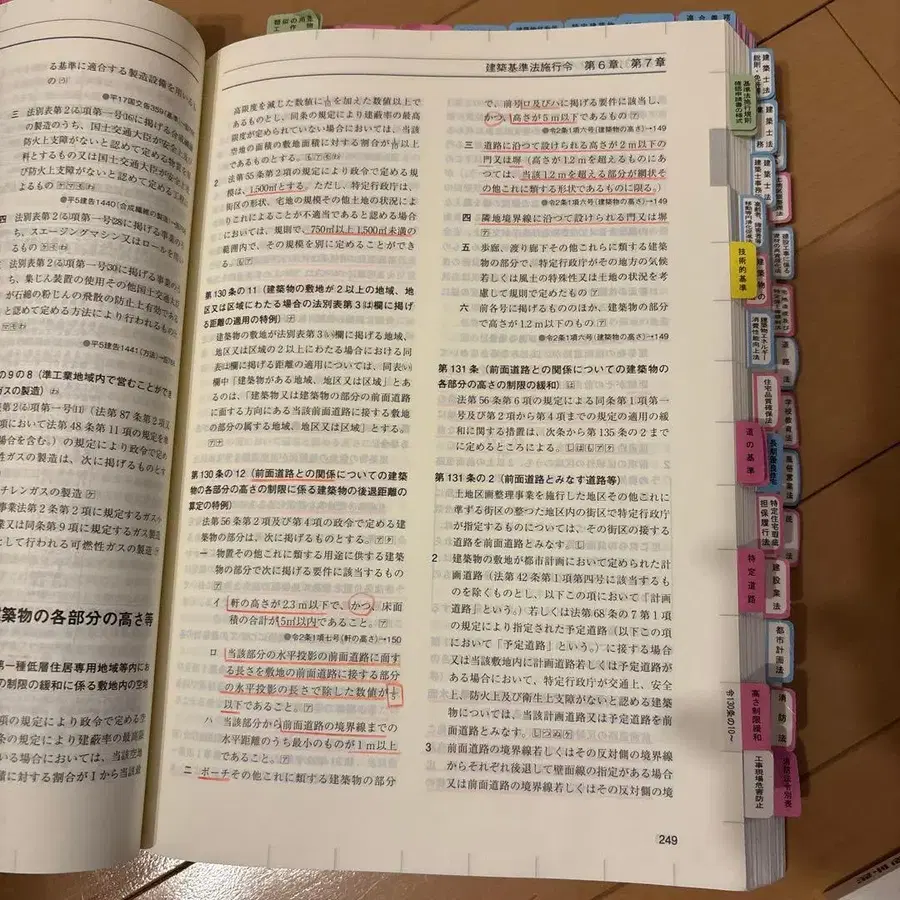 る基準に適合する製造設備を用いる
の
●平17国交告359
三 法別表第2(る)項第一号(19)に掲げる合成繊維
の製造のうち、国土交通大臣が安全上及び
防火上支障がないと認めて定める物質を原
料とするもの又は国土交通大臣が安全上及
び防火上支障がないと認めて定める工程に
よるもの
●平5建告1440(合成繊維の製造)
四 法別表第2(る)項第一号(28)に掲げる事業のう
ち、スエージングマシン又はロールを用い
るもの
法別表第2(る)項第一号(30)に掲げる事業のう
ち、集じん装置の使用その他国土交通大臣
が石綿の粉じんの飛散の防止上有効である
と認めて定める方法により行われるもの
●平5建告1441(方法)
の9の8(準工業地域内で営むことができ
ガスの製造)
表第2(ぬ)項第一号(11)(法第87条第2項又
項において法第48条第11項の規定を準
場合を含む。)の規定により政令で定め
性ガスの製造は、次に掲げるものとす
チレンガスの製造
事業法第2条第2項に規定するガス
業又は同条第9項に規定するガス製造
として行われる可燃性ガスの製造
築物の各部分の高さ等
第一種低層住居専用地域等内にお
の制限の緩和に係る敷地内の空地
の規定により政令で定める空
条の規定により建蔽率の最高限
いる場合においては、当該空地
積に対する割合が1から当該最
建築基準法施行令 第6章、第7章
高限度を減じた数値に1/10を加えた数値以上で
あるものとし、同条の規定により建蔽率の最高
限度が定められていない場合においては、当該
空地の面積の敷地面積に対する割合が1/10以上
であるものとする。
2 法第55条第2項の規定により政令で定める規
模は、1,500㎡とする。ただし、特定行政庁は、
街区の形状、宅地の規模その他土地の状況によ
りこれによることが不適当であると認める場合
においては、規則で、750㎡以上1,500㎡未満の
範囲内で、その規模を別に定めることができ
る。
第130条の11(建築物の敷地が2以上の地域、地
区又は区域にわたる場合の法別表第3(は)欄に掲げ
る距離の適用の特例)
建築物の敷地が法別表第3(い)欄に掲げる地域、
地区又は区域の2以上にわたる場合における同
表(は)欄に掲げる距離の適用については、同表(い)
欄中「建築物がある地域、地区又は区域」とあ
るのは、「建築物又は建築物の部分の前面道路
に面する方向にある当該前面道路に接する敷地
の部分の属する地域、地区又は区域」とする。
第130条の12(前面道路との関係についての建築
物の各部分の高さの制限に係る建築物の後退距離の
算定の特例)
法第56条第2項及び第4項の政令で定める建
築物の部分は、次に掲げるものとする。
一 物置その他これに類する用途に供する建築
物の部分で次に掲げる要件に該当するもの
イ 軒の高さが2.3m以下で、かつ、床面
積の合計が5㎡以内であること。
●令2条1項七号(軒の高さ)→150
ロ 当該部分の水平投影の前面道路に面す
る長さを敷地の前面道路に接する部分
の水平投影の長さで除した数値が1/5
以下であること。
ハ 当該部分から前面道路の境界線までの
水平距離のうち最小のものが1m以上
であること。
二 ポーチその他これに類する建築物の部分
で、前号ロ及びハに掲げる要件に該当し、
かつ、高さが5m以下であるもの
●令2条1項六号(建築物の高さ)→149
三 道路に沿つて設けられる高さが2m以下の
門又は塀(高さが1.2mを超えるものにあ
つては、当該1.2mを超える部分が網状そ
の他これに類する形状であるものに限る。)
●令2条1項六号(建築物の高さ)→149
四 隣地境界線に沿つて設けられる門又は塀
五 歩廊、渡り廊下その他これらに類する建築
物の部分で、特定行政庁がその地方の気候
若しくは風土の特殊性又は土地の状況を考
慮して規則で定めたもの
六 前各号に掲げるもののほか、建築物の部分
で高さが1.2m以下のもの
●令2条1項六号(建築物の高さ)→149
第131条(前面道路との関係についての建築物の
各部分の高さの制限の緩和)
法第56条第6項の規定による同条第1項第一
号及び第2項から第4項までの規定の適用の緩
和に関する措置は、次条から第135条の2まで
に定めるところによる。
第131条の2(前面道路とみなす道路等)
土地区画整理事業を施行した地区その他これに
準ずる街区の整つた地区内の街区で特定行政庁
が指定するものについては、その街区の接する
道路を前面道路とみなす。
2 建築物の敷地が都市計画において定められた計
画道路(法第42条第1項第四号に該当するも
のを除くものとし、以下この項において「計画
道路」という。)若しくは法第68条の7第1項
の規定により指定された予定道路(以下この項
において「予定道路」という。)に接する場合
又は当該敷地内に計画道路若しくは予定道路が
ある場合において、特定行政庁が交通上、安全
上、防火上及び衛生上支障がないと認める建築
物については、当該計画道路又は予定道路を前
面道路とみなす。
3 前面道路の境界線若しくはその反対側の境界線
からそれぞれ後退して壁面線の指定がある場合
又は前面道路の境界線若しくはその反対側の境
249
基準法施行規則
確認申請書の様式
技術的基準
道の基準
特定道路
高さ制限緩和
令130条の10〜
工事現場危害防止
建築士法
建築士法
建築士法
建築物エネルギー
消費性能向上法
道路法
住宅品質確保法
学校教育法
長期優良住宅
風俗営業法
特定住宅瑕疵
担保履行法
建設業法
都市計画法
消防法
消防法令別表